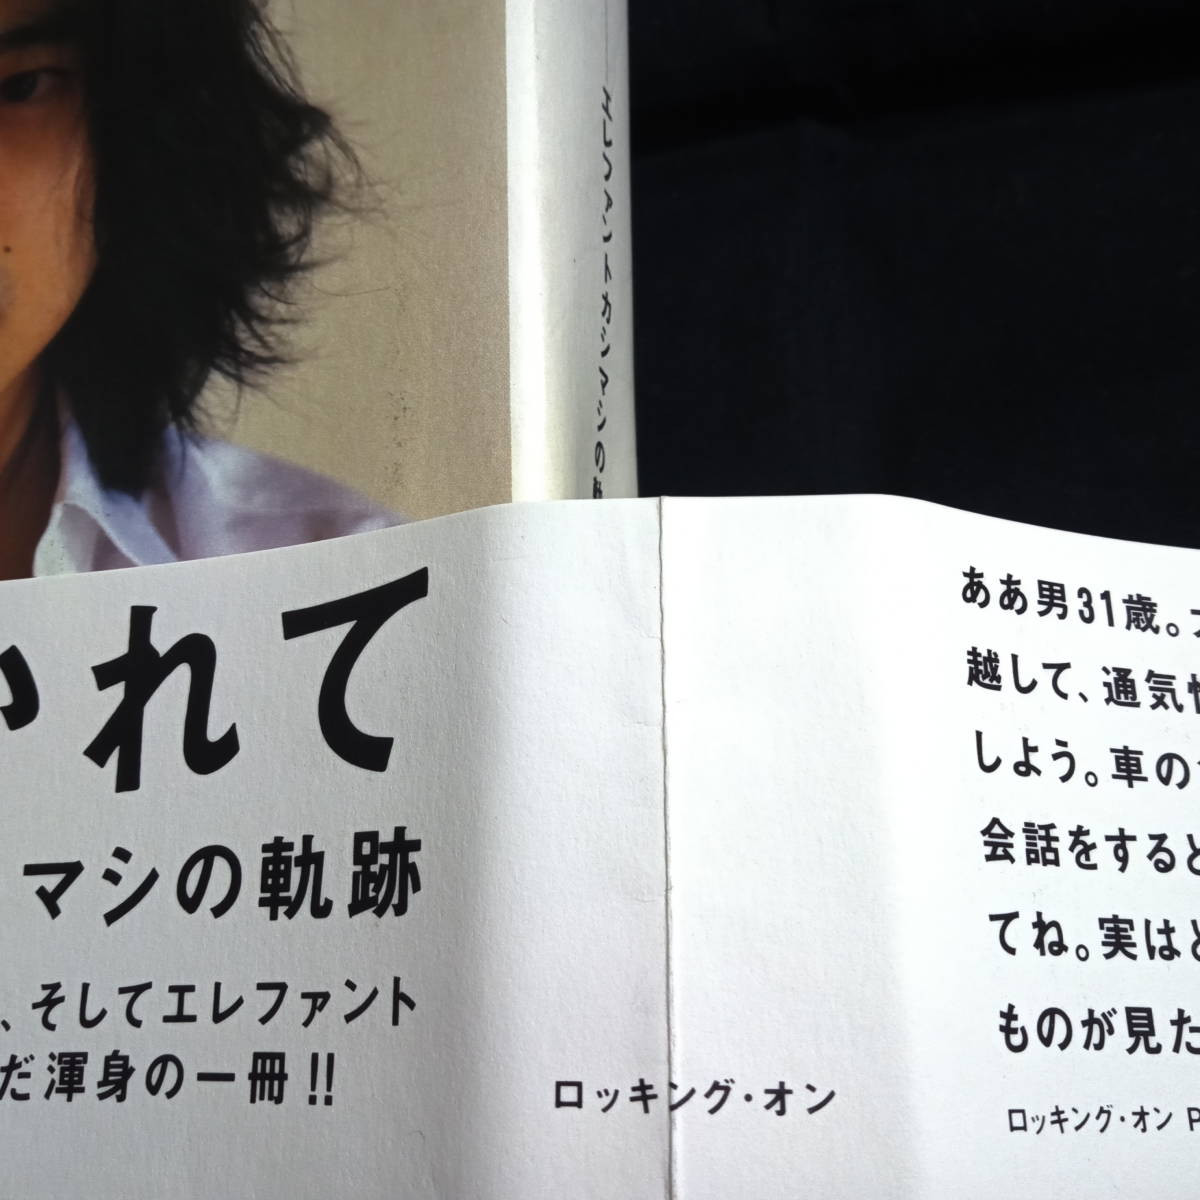 エレファントカシマシの
かれて
マシの軌跡
、そしてエレファント
だ渾身の一冊!!
ロッキング・オン
ああ男31歳。
越して、通気
しよう。車の
会話をすると
てね。実はと
ものが見た
ロッキング・オン P